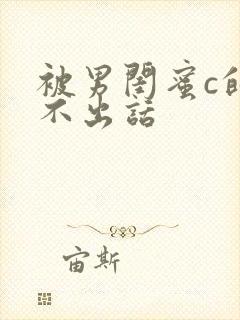 被男閨蜜c的
不出話
宙斯